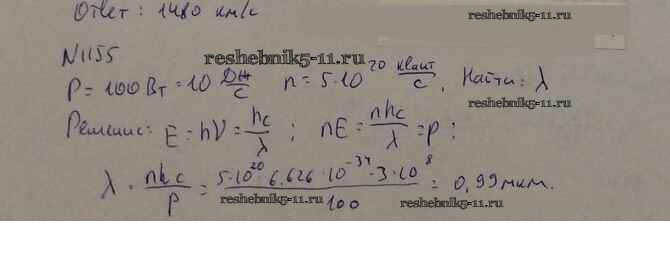 Ответ: 1480 км/с
reshebnik5-11.ru
N1155
reshebnik5-11.ru
P = 100 Вт = 10 Дж/с n = 5·10^20 квант/с. Найти: λ
reshebnik5-11.ru
Решение: E = hν = hc/λ ; nE = nhc/λ = p ;
λ = nhc/P = 5·10^20·6,626·10^-34·3·10^8/100 = 0,99 мкм.
reshebnik5-11.ru reshebnik5-11.ru